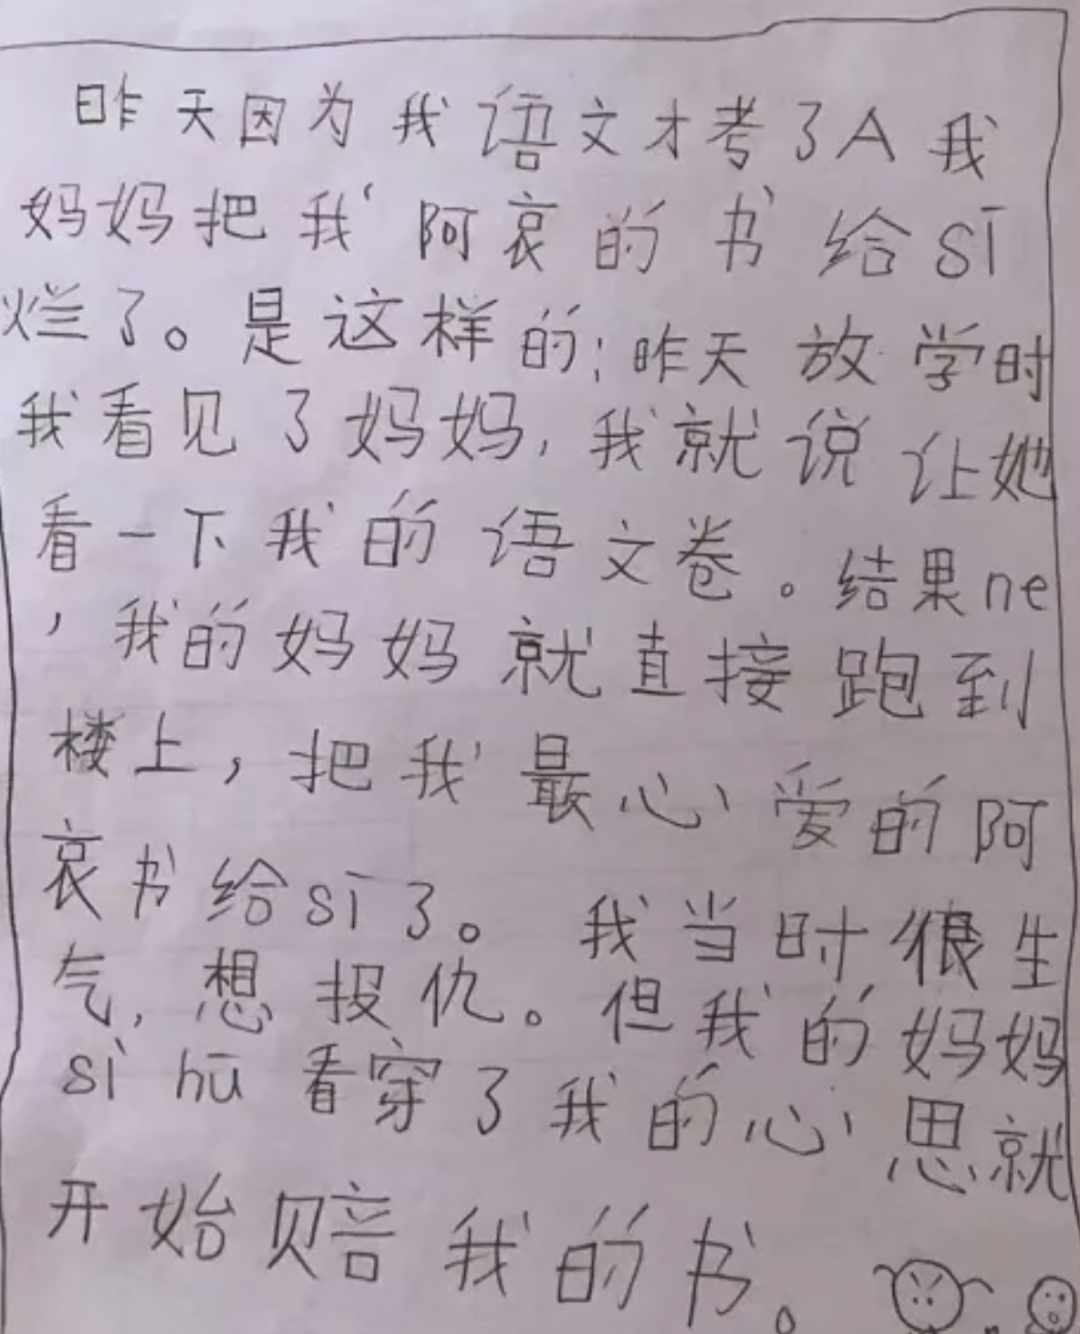 昨天因为我语文才考了A我
妈妈把我阿衰的书给sī
烂了。是这样的;昨天放学时
我看见了妈妈,我就说让她
看一下我的语文卷。结果ne
,我的妈妈就直接跑到
楼上,把我最心爱的阿
衰书给sī了。我当时很生
气,想报仇。但我的妈妈
sì hū 看穿了我的心思就
开始赔我的书。